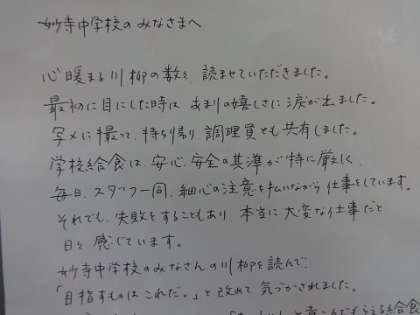 妙寺中学校のみなさまへ
心暖まる川柳の数々、読ませていただきました。
最初に目にした時は あまりの嬉しさに涙が出ました。
写メに撮って、持ち帰り 調理員とも共有しました。
学校給食は、安心、安全の基準が特に厳しく、
毎日、スタッフ一同、細心の注意を払いながら 仕事をしています。
それでも、失敗をすることもあり、本当に大変な仕事だと
日々 感じています。
妙寺中学校のみなさんの川柳を読んで、
「目指すものはこれだ。」と改めて 気づかされました。